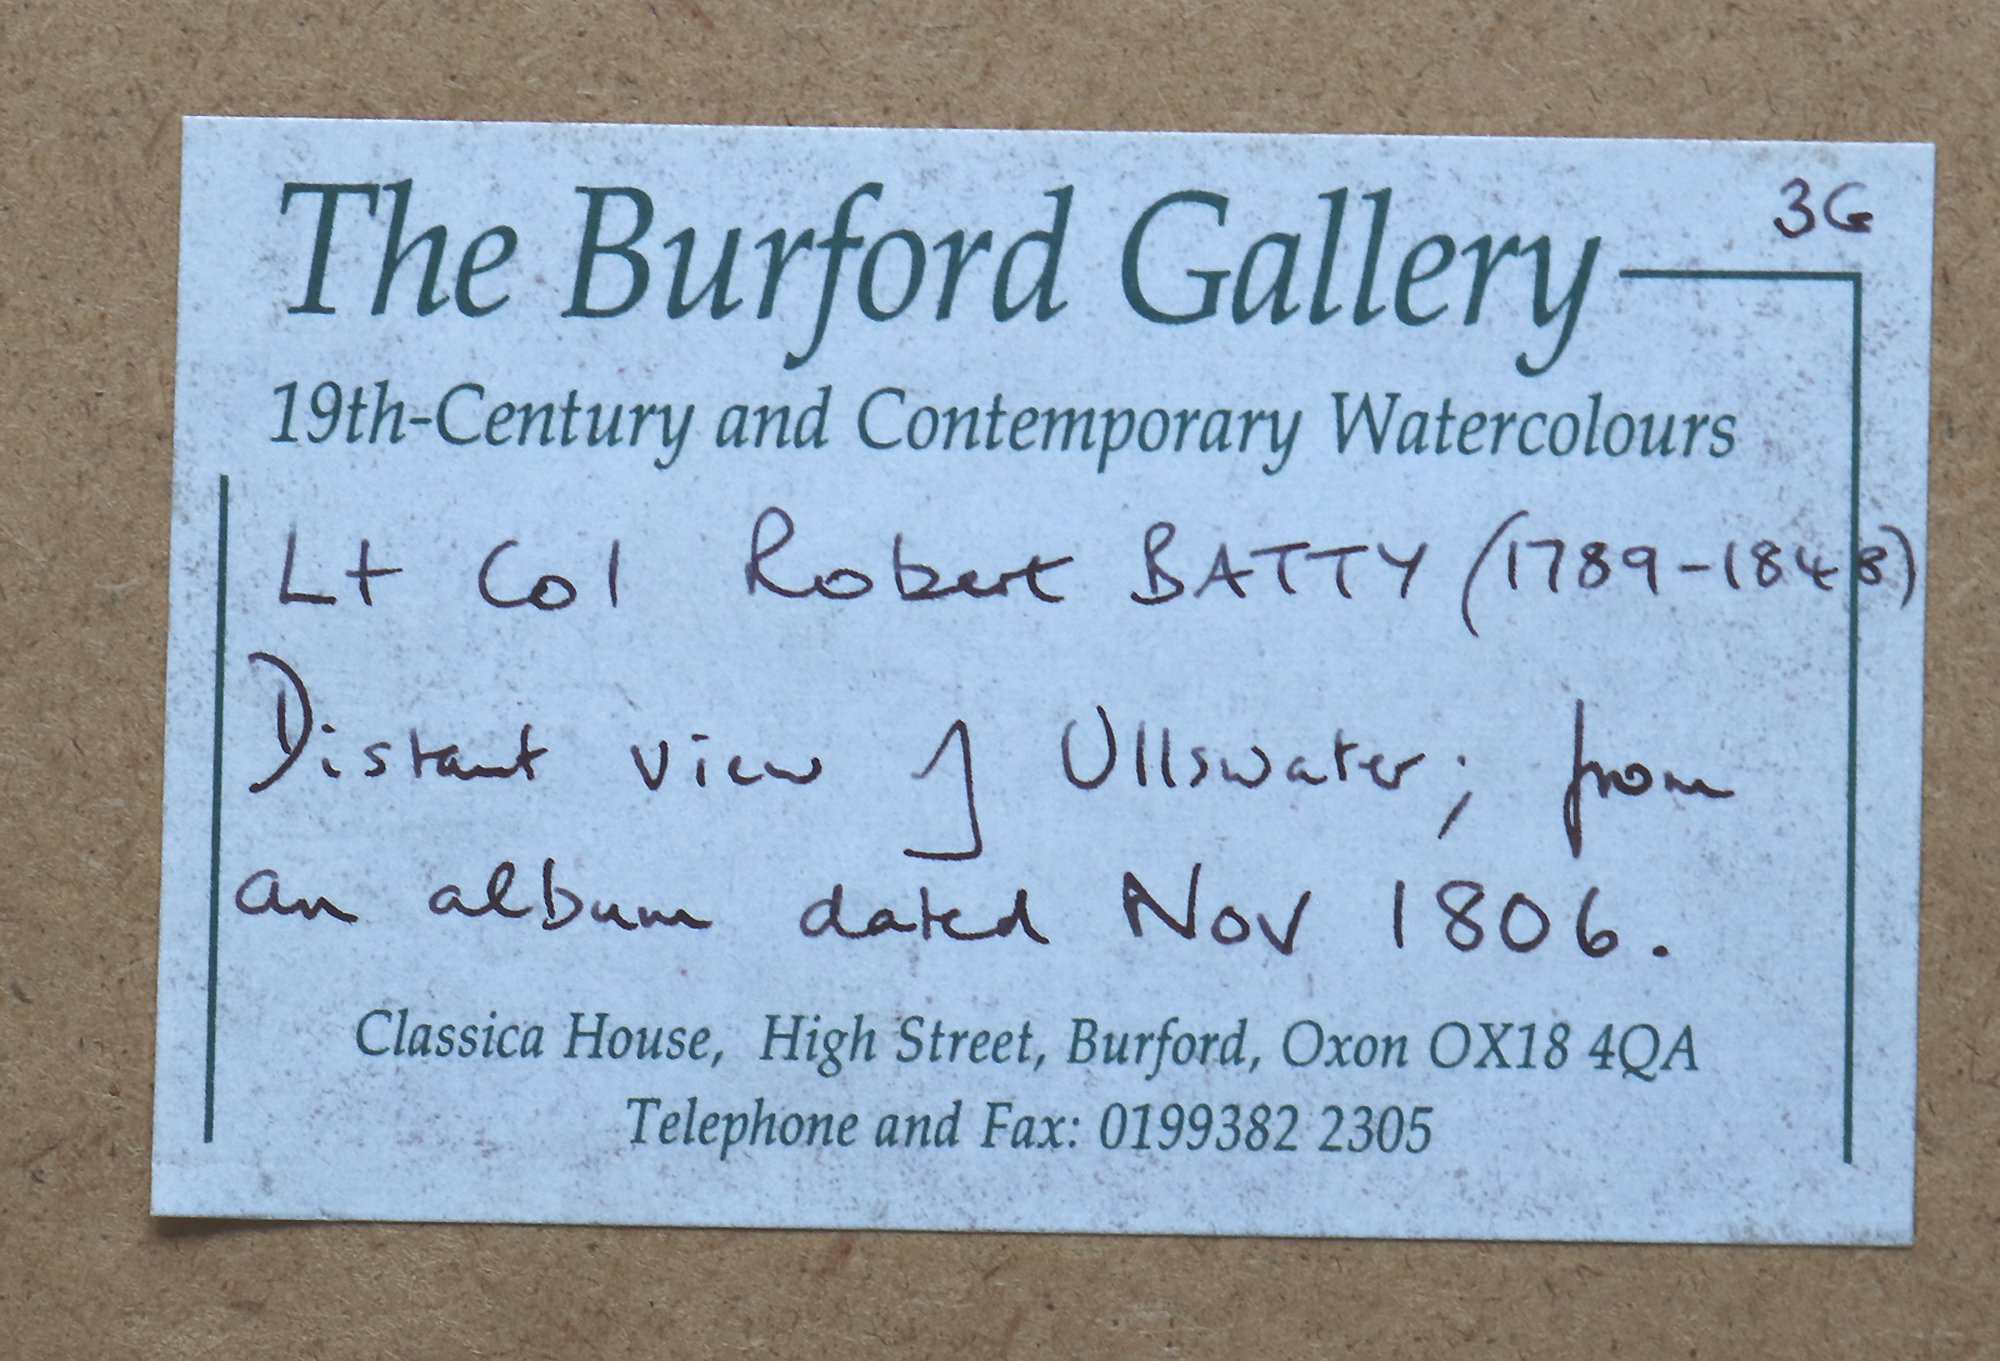 3G
The Burford Gallery
19th-Century and Contemporary Watercolours
Lt Col Robert BATTY (1789-1848)
Distant view of Ullswater; from
an album dated Nov 1806.
Classica House, High Street, Burford, Oxon OX18 4QA
Telephone and Fax: 0199382 2305